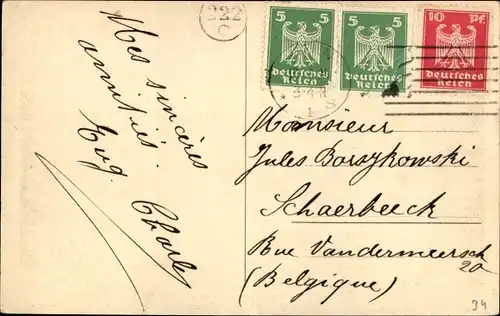 222
C
5 5
Deutsches
Reich
5 5
Deutsches
Reich
10 Pf.
Deutsches
Reich
Mes sincères
amitiés.
Eug. Charles
Monsieur
Jules Borszykowski
Schaerbeeck
Rue Vandermeersch
20
(Belgique)
34